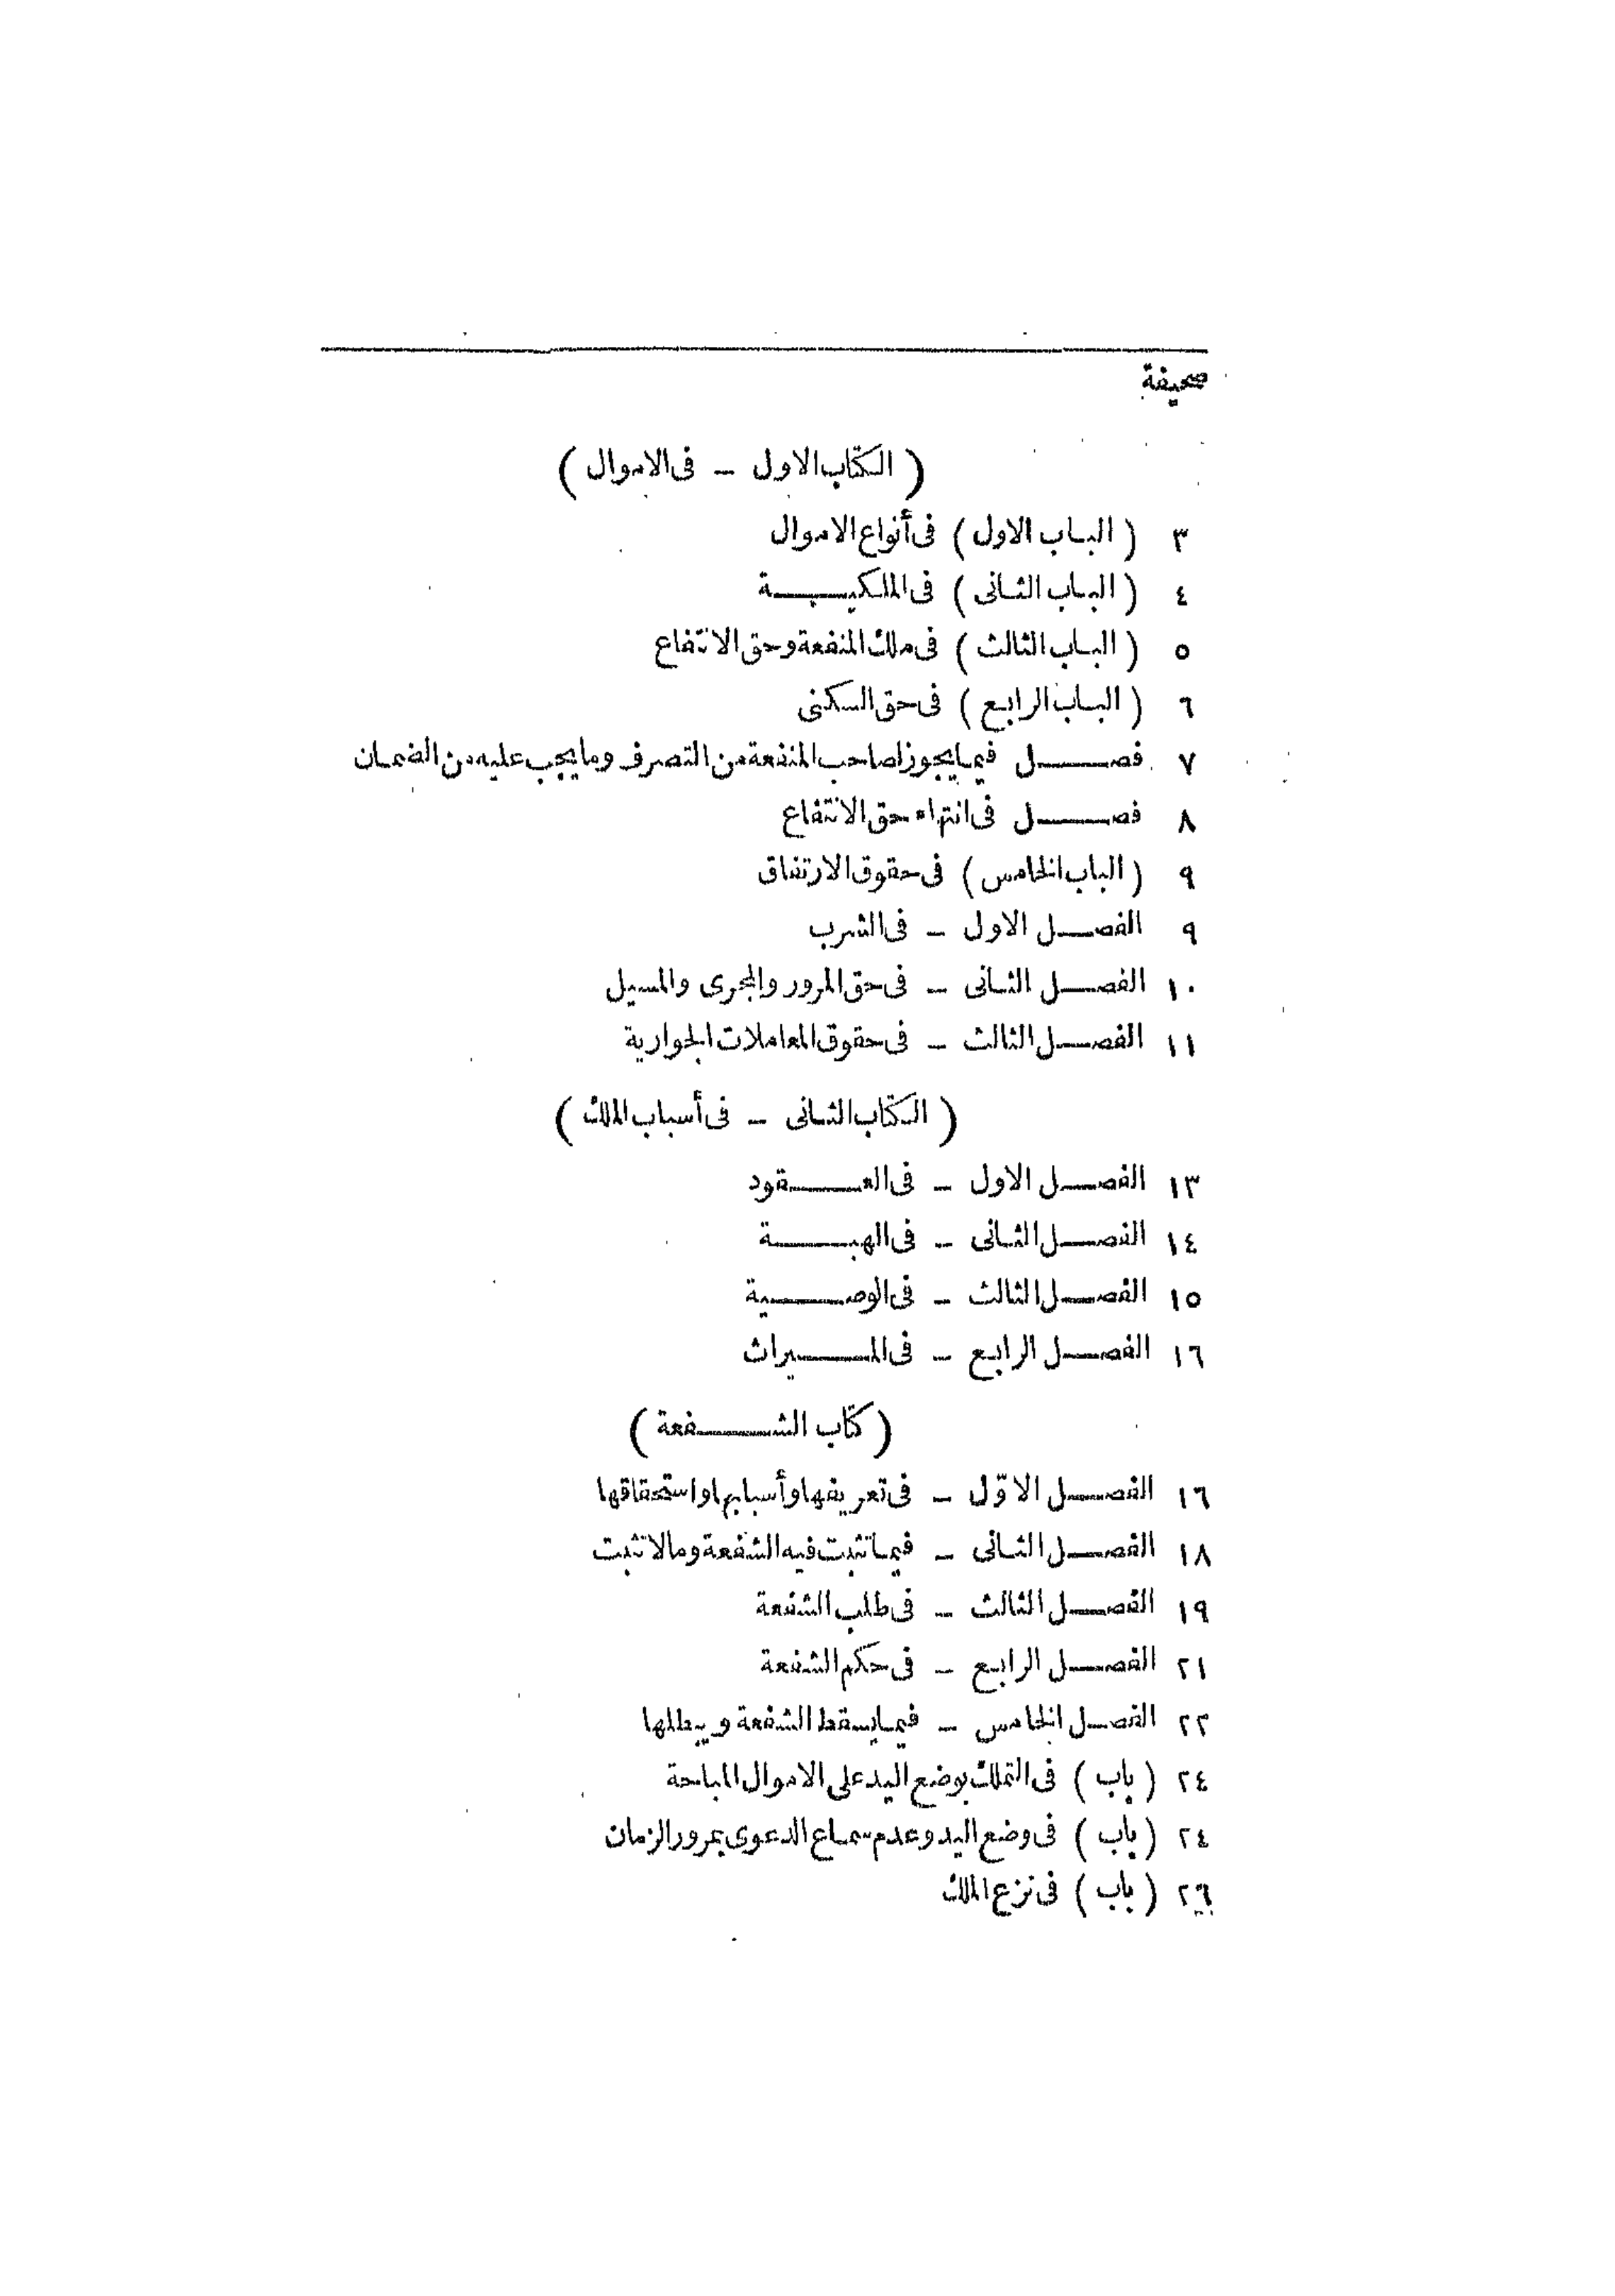 صحيفة
( الكتاب الاول - فى الاموال )
٣ ( الباب الاول ) فى أنواع الاموال
٤ ( الباب الثانى ) فى الملكية
٥ ( الباب الثالث ) فى ملك المنفعة وحق الانتفاع
٦ ( الباب الرابع ) فى حق السكنى
٧ فصل فيما يجوز لصاحب المنفعة من التصرف وما يجب عليه من الضمان
٨ فصل فى انتهاء حق الانتفاع
٩ ( الباب الخامس ) فى حقوق الارتفاق
٩ الفصل الاول - فى الشرب
١٠ الفصل الثانى - فى حق المرور والمجرى والمسيل
١١ الفصل الثالث - فى حقوق المعاملات الجوارية
( الكتاب الثانى - فى أسباب الملك )
١٣ الفصل الاول - فى العقود
١٤ الفصل الثانى - فى الهبة
١٥ الفصل الثالث - فى الوصية
١٦ الفصل الرابع - فى الميراث
( كتاب الشفعة )
١٦ الفصل الاوّل - فى تعريفها وأسبابها واستحقاقها
١٨ الفصل الثانى - فيما تثبت فيه الشفعة وما لا تثبت
١٩ الفصل الثالث - فى طلب الشفعة
٢١ الفصل الرابع - فى حكم الشفعة
٢٢ الفصل الخامس - فيما يسقط الشفعة ويبطلها
٢٤ ( باب ) فى التملك بوضع اليد على الاموال المباحة
٢٤ ( باب ) فى وضع اليد وعدم سماع الدعوى بمرور الزمان
٢٦ ( باب ) فى نزع الملك